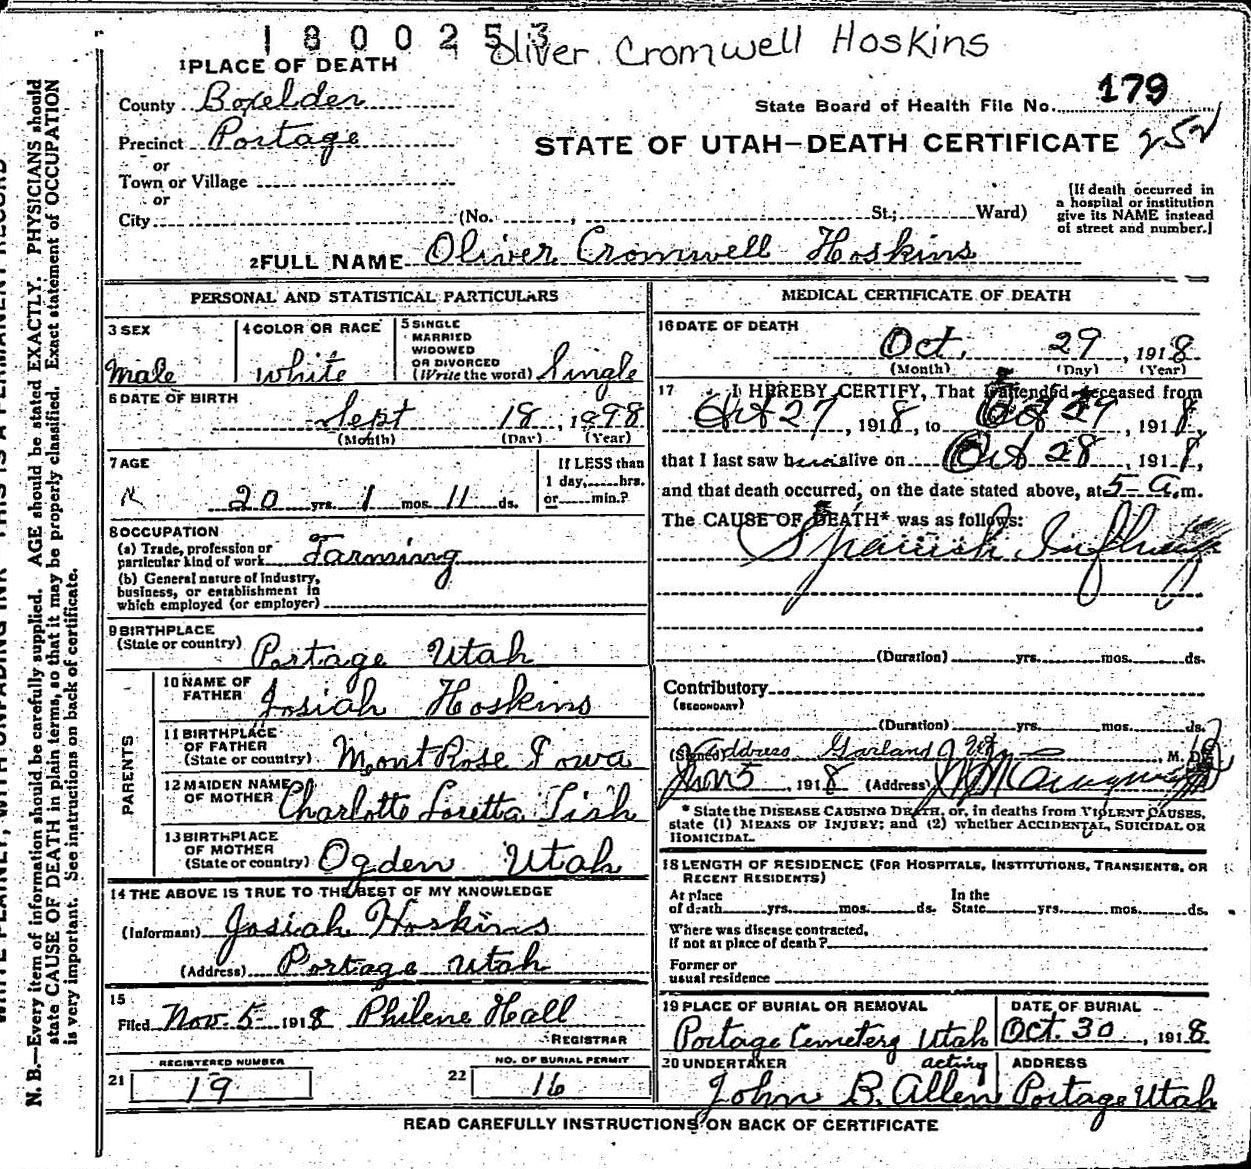 1800253
Oliver Cromwell Hoskins
1 PLACE OF DEATH
County Boxelder
State Board of Health File No. 179
Precinct Portage
STATE OF UTAH—DEATH CERTIFICATE 252
or
Town or Village
or
City (No. , St.; Ward)
[If death occurred in
a hospital or institution
give its NAME instead
of street and number.]
2 FULL NAME Oliver Cromwell Hoskins
PERSONAL AND STATISTICAL PARTICULARS
3 SEX
Male
4 COLOR OR RACE
White
5 SINGLE
MARRIED
WIDOWED
OR DIVORCED
(Write the word) Single
6 DATE OF BIRTH
Sept 18, 1898
(Month) (Day) (Year)
7 AGE
20 yrs. 1 mos. 11 ds.
If LESS than
1 day, hrs.
or min.?
8 OCCUPATION
(a) Trade, profession or
particular kind of work Farming
(b) General nature of industry,
business, or establishment in
which employed (or employer)
9 BIRTHPLACE
(State or country) Portage Utah
PARENTS
10 NAME OF
FATHER Josiah Hoskins
11 BIRTHPLACE
OF FATHER
(State or country) MontRose Iowa
12 MAIDEN NAME
OF MOTHER Charlotte Loretta Tish
13 BIRTHPLACE
OF MOTHER
(State or country) Ogden Utah
14 THE ABOVE IS TRUE TO THE BEST OF MY KNOWLEDGE
(Informant) Josiah Hoskins
(Address) Portage Utah
15
Filed Nov. 5 1918 Philene Hall
REGISTRAR
REGISTERED NUMBER
21 19
NO. OF BURIAL PERMIT
22 16
MEDICAL CERTIFICATE OF DEATH
16 DATE OF DEATH
Oct. 29, 1918
(Month) (Day) (Year)
17 I HEREBY CERTIFY, That I attended deceased from
Oct 27, 1918, to Oct 29, 1918,
that I last saw alive on Oct 28, 1918,
and that death occurred, on the date stated above, at 5 a.m.
The CAUSE OF DEATH* was as follows:
Spanish
(Duration) yrs. mos. ds.
Contributory
(SECONDARY)
(Duration) yrs. mos. ds.
(Signed) Address Garland , M. D.
5, 1918 (Address)
* State the DISEASE CAUSING DEATH, or, in deaths from VIOLENT CAUSES,
state (1) MEANS OF INJURY; and (2) whether ACCIDENTAL, SUICIDAL OR
HOMICIDAL.
18 LENGTH OF RESIDENCE (FOR HOSPITALS, INSTITUTIONS, TRANSIENTS, OR
RECENT RESIDENTS)
At place In the
of death yrs. mos. ds. State yrs. mos. ds.
Where was disease contracted,
if not at place of death?
Former or
usual residence
19 PLACE OF BURIAL OR REMOVAL
Portage Cemetery Utah
DATE OF BURIAL
Oct. 30, 1918
20 UNDERTAKER acting
John B. Allen
ADDRESS
Portage Utah
READ CAREFULLY INSTRUCTIONS ON BACK OF CERTIFICATE
N. B.—Every item of information should be carefully supplied. AGE should be stated EXACTLY. PHYSICIANS should
state CAUSE OF DEATH in plain terms, so that it may be properly classified. Exact statement of OCCUPATION
is very important. See instructions on back of certificate.